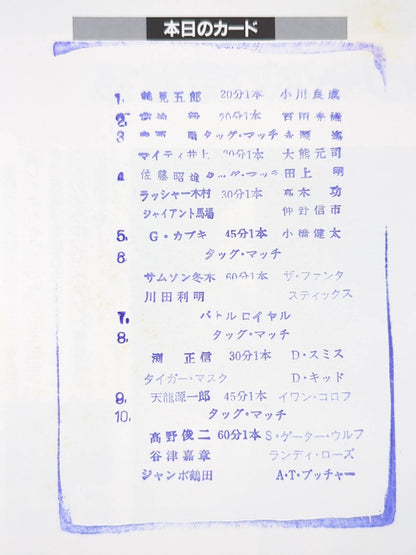 本日のカード
1. 鶴見五郎 20分1本 小川良成
2. 20分1本 百田光雄
3 タッグ・マッチ 永源 遙
マイティ井上 20分1本 大熊元司
4 佐藤昭雄 タッグ・マッチ 田上 明
ラッシャー木村 30分1本 高木 功
ジャイアント馬場 仲野信市
5. G・カブキ 45分1本 小橋健太
6 タッグ・マッチ
サムソン冬木 60分1本 ザ・ファンタ
川田利明 スティックス
7. バトルロイヤル
8. タッグ・マッチ
渕 正信 30分1本 D・スミス
タイガー・マスク D・キッド
9. 天龍源一郎 45分1本 イワン・コロフ
10. タッグ・マッチ
高野俊二 60分1本 S・ゲーター・ウルフ
谷津嘉章 ランディ・ローズ
ジャンボ鶴田 A・T・ブッチャー